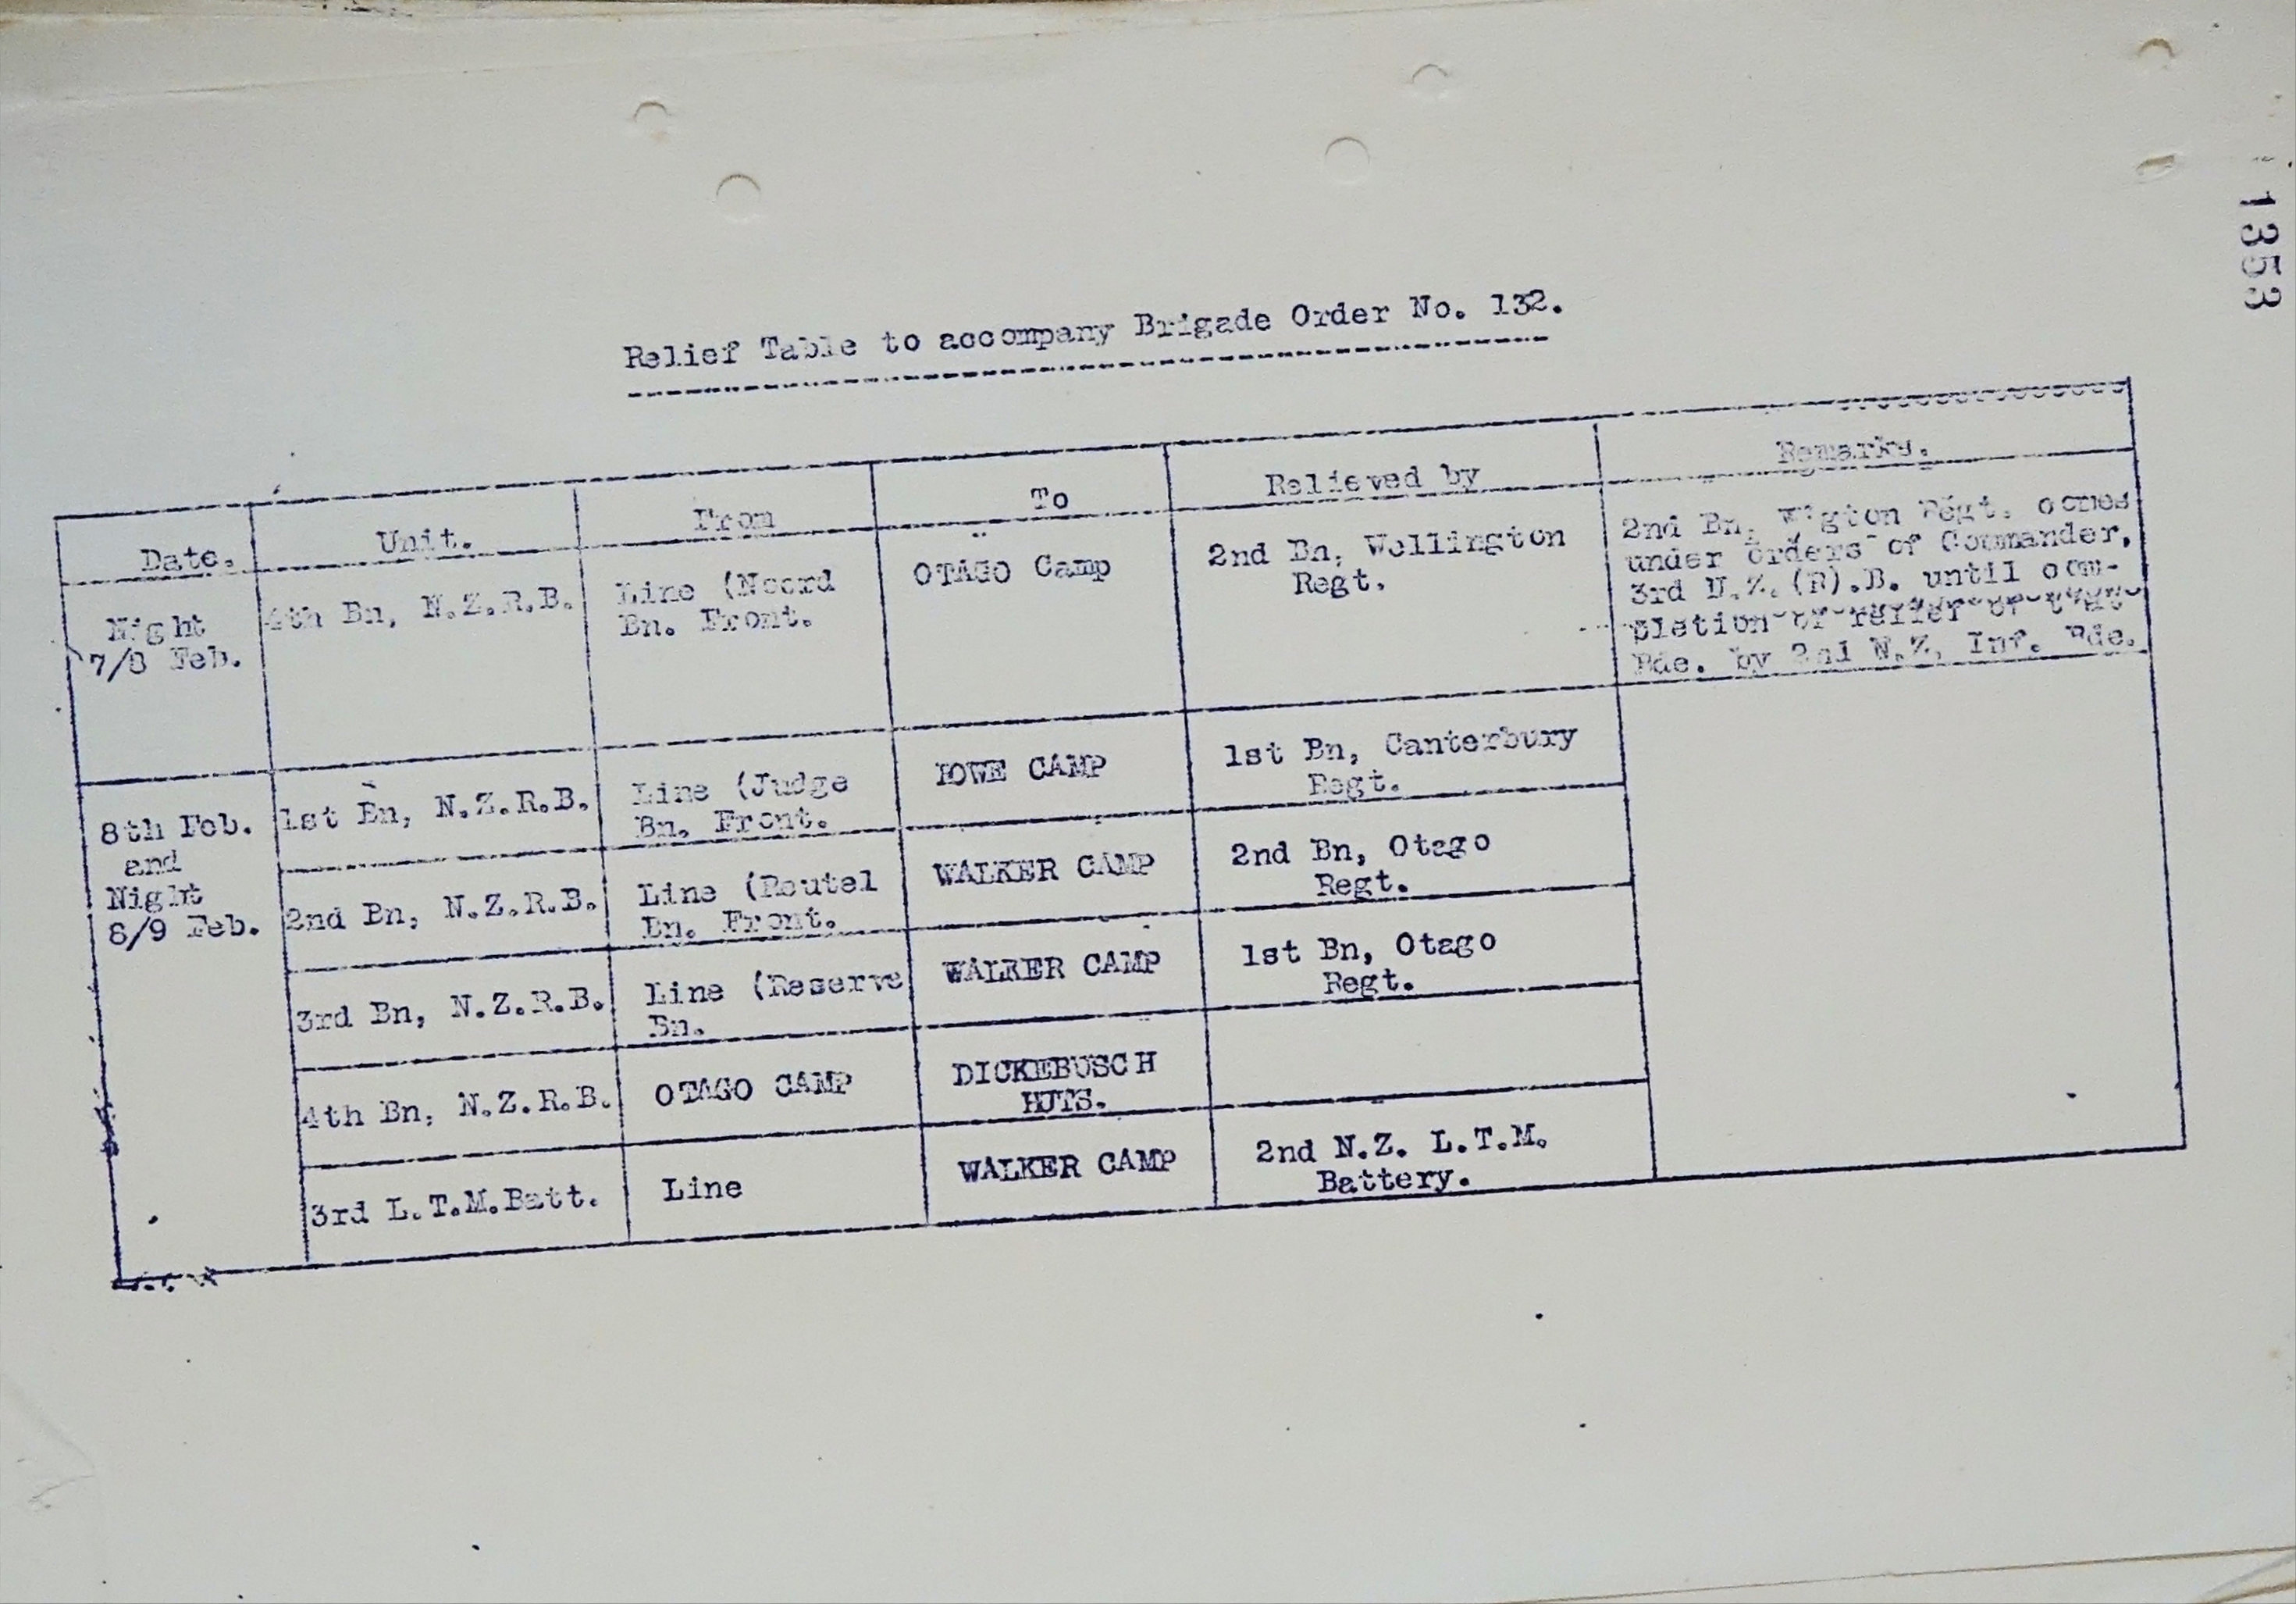 1353
Relief Table to accompany Brigade Order No. 132.
Date. Unit. From To Relieved by Remarks.
Night
7/8 Feb.
4th Bn, N.Z.R.B.
Line (Noord
Bn. Front.
OTAGO Camp
2nd Bn, Wellington
Regt.
2nd Bn. W'gton Regt. comes
under orders of Commander,
3rd N.Z.(R).B. until com-
pletion of relief of
Bde. by 2nd N.Z. Inf. Bde.
8th Feb.
and
Night
8/9 Feb.
1st Bn, N.Z.R.B.
Line (Judge
Bn. Front.
HOWE CAMP
1st Bn, Canterbury
Regt.
2nd Bn, N.Z.R.B.
Line (Reutel
Bn. Front.
WALKER CAMP
2nd Bn, Otago
Regt.
3rd Bn, N.Z.R.B.
Line (Reserve
Bn.
WALKER CAMP
1st Bn, Otago
Regt.
4th Bn, N.Z.R.B.
OTAGO CAMP
DICKEBUSCH
HUTS.
3rd L.T.M.Batt.
Line
WALKER CAMP
2nd N.Z. L.T.M.
Battery.